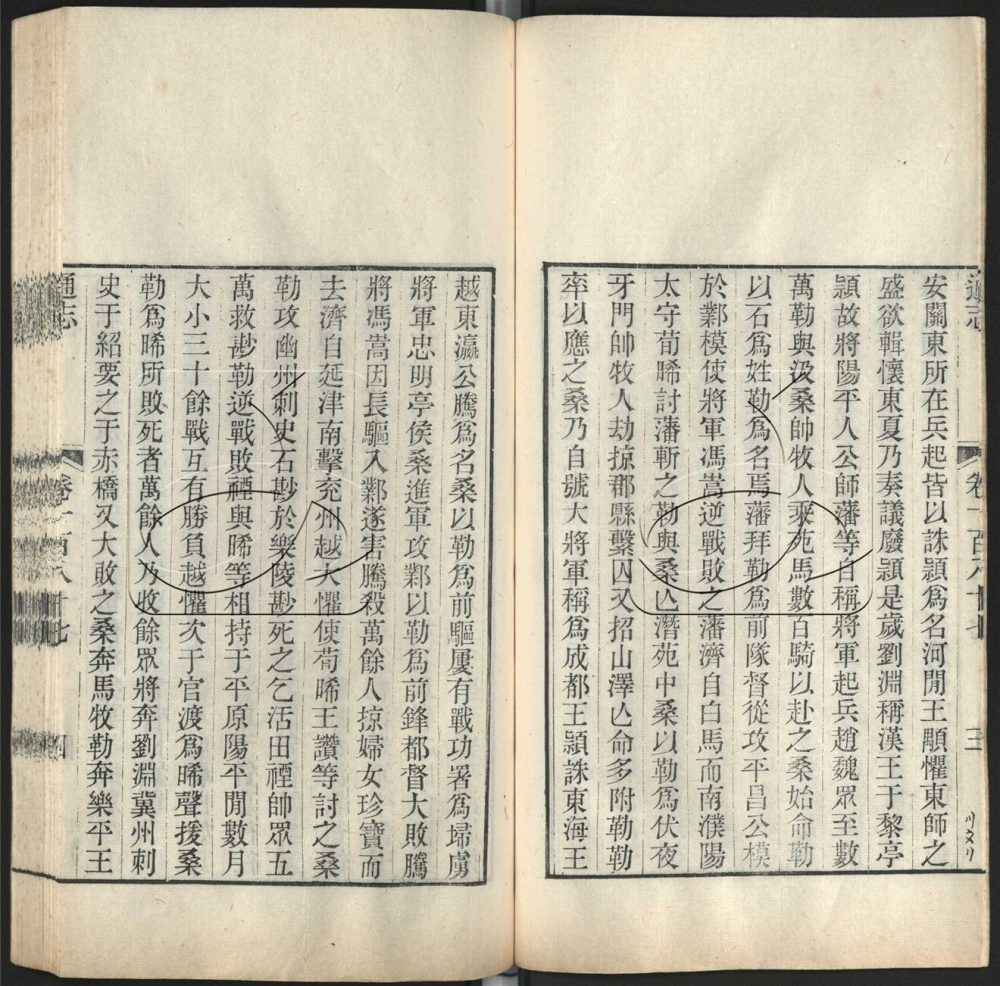 通志
卷一百八十七
三
安關東所在兵起皆以誅頴爲名河閒王顒懼東師之
盛欲輯懷東夏乃奏議廢頴是歲劉淵稱漢王于黎亭
頴故將陽平人公師藩等自稱將軍起兵趙魏眾至數
萬勒與汲桑帥牧人乘苑馬數百騎以赴之桑始命勒
以石爲姓勒爲名焉藩拜勒爲前隊督從攻平昌公模
於鄴模使將軍馮嵩逆戰敗之藩濟自白馬而南濮陽
太守苟晞討藩斬之勒與桑亾潛苑中桑以勒爲伏夜
牙門帥牧人劫掠郡縣繫囚又招山澤亾命多附勒勒
率以應之桑乃自號大將軍稱爲成都王頴誅東海王
越東瀛公騰爲名桑以勒爲前驅屢有戰功署爲埽虜
將軍忠明亭侯桑進軍攻鄴以勒爲前鋒都督大敗騰
將馮嵩因長驅入鄴遂害騰殺萬餘人掠婦女珍寶而
去濟自延津南擊兖州越大懼使苟晞王讚等討之桑
勒攻幽州刺史石尠於樂陵尠死之乞活田禋帥眾五
萬救尠勒逆戰敗禋與晞等相持于平原陽平閒數月
大小三十餘戰互有勝負越懼次于官渡爲晞聲援桑
勒爲晞所敗死者萬餘人乃收餘眾將奔劉淵冀州刺
史于紹要之于赤橋又大敗之桑奔馬牧勒奔樂平王
通志
卷一百八十七
四